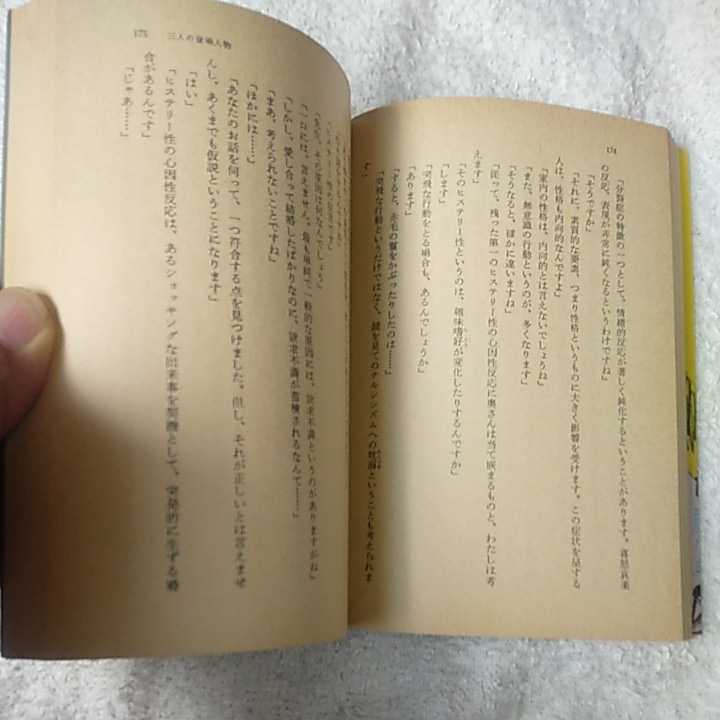 174
「分裂症の特徴の一つとして、情緒的反応が著しく鈍化するということがあります。喜怒哀楽
の反応、表現が非常に鈍くなるというわけですね」
「そうですか」
「それに、素質的な要素、つまり性格というものに大きく影響を受けます。この症状を呈する
人は、性格も内向的なんですよ」
「家内の性格は、内向的とは言えないでしょうね」
「また、無意識の行動というのが、多くなります」
「そうなると、ぼかに違いますね」
「従って、残った第一のヒステリー性の心因性反応に奥さんは当て嵌まるものと、わたしは考
えます」
「そのヒステリー性というのは、趣味嗜好が変化したりするんですか」
「突飛な行動をとる場合も、あるんでしょうか」
「あります」
「すると、赤毛の鬘をかぶったりしたのは……」
「突飛な行動というだけではなく、鏡を見てのナルシシズムへの
ということも考えられま
175
三人の登場人物
「一口には、言えません。最も単純で一般的な原因には、欲求不満というのがありますがね」
「しかし、愛し合って結婚したばかりなのに、欲求不満が蓄積されるなんて……」
「まあ、考えられないことですね」
「ほかには……」
「あなたのお話を伺って、一つ符合する点を見つけました。但し、それが正しいとは言えませ
んし、あくまでも仮説ということになります」
「はい」
「ヒステリー性の心因性反応は、あるショッキングな出来事を契機として、突発的に生ずる場
合があるんです」
「じゃあ……」